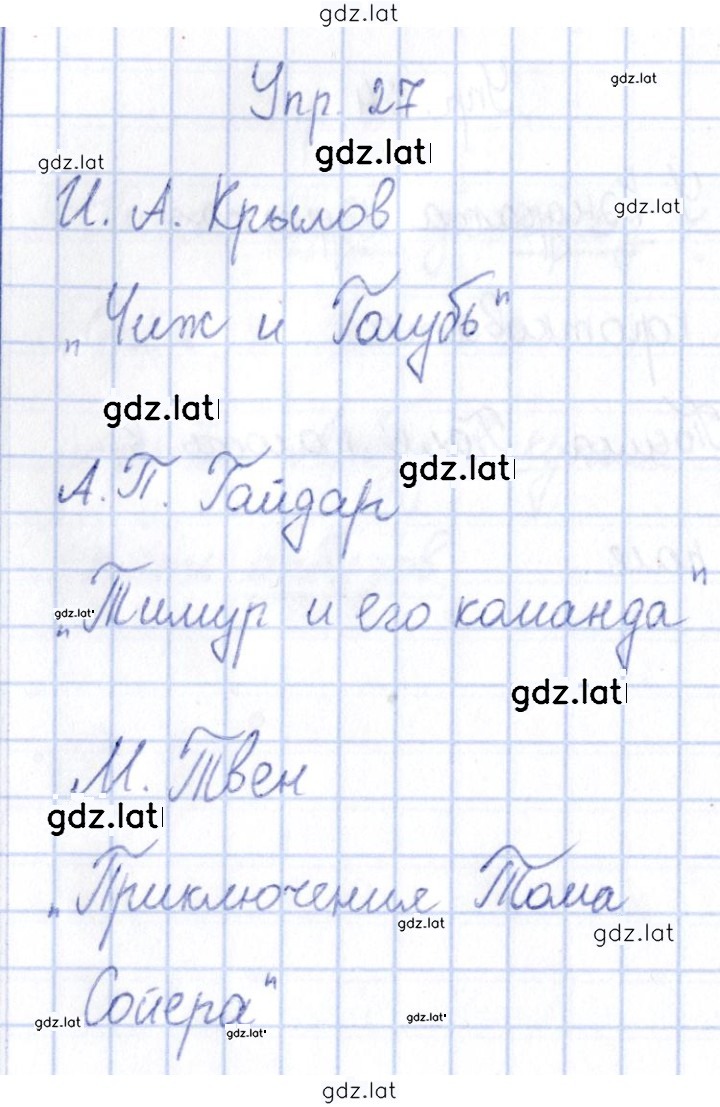 gdz.lat
Упр. 27
gdz.lat
gdz.lat
gdz.lat
И. А. Крылов
gdz.lat
„Чиж и Голубь"
gdz.lat
gdz.lat
А. П. Гайдар
„Тимур и его команда"
gdz.lat
gdz.lat
М. Твен
gdz.lat
„Приключения Тома
gdz.lat
gdz.lat
Сойера"
gdz.lat
gdz.lat
gdz.lat
gdz.lat